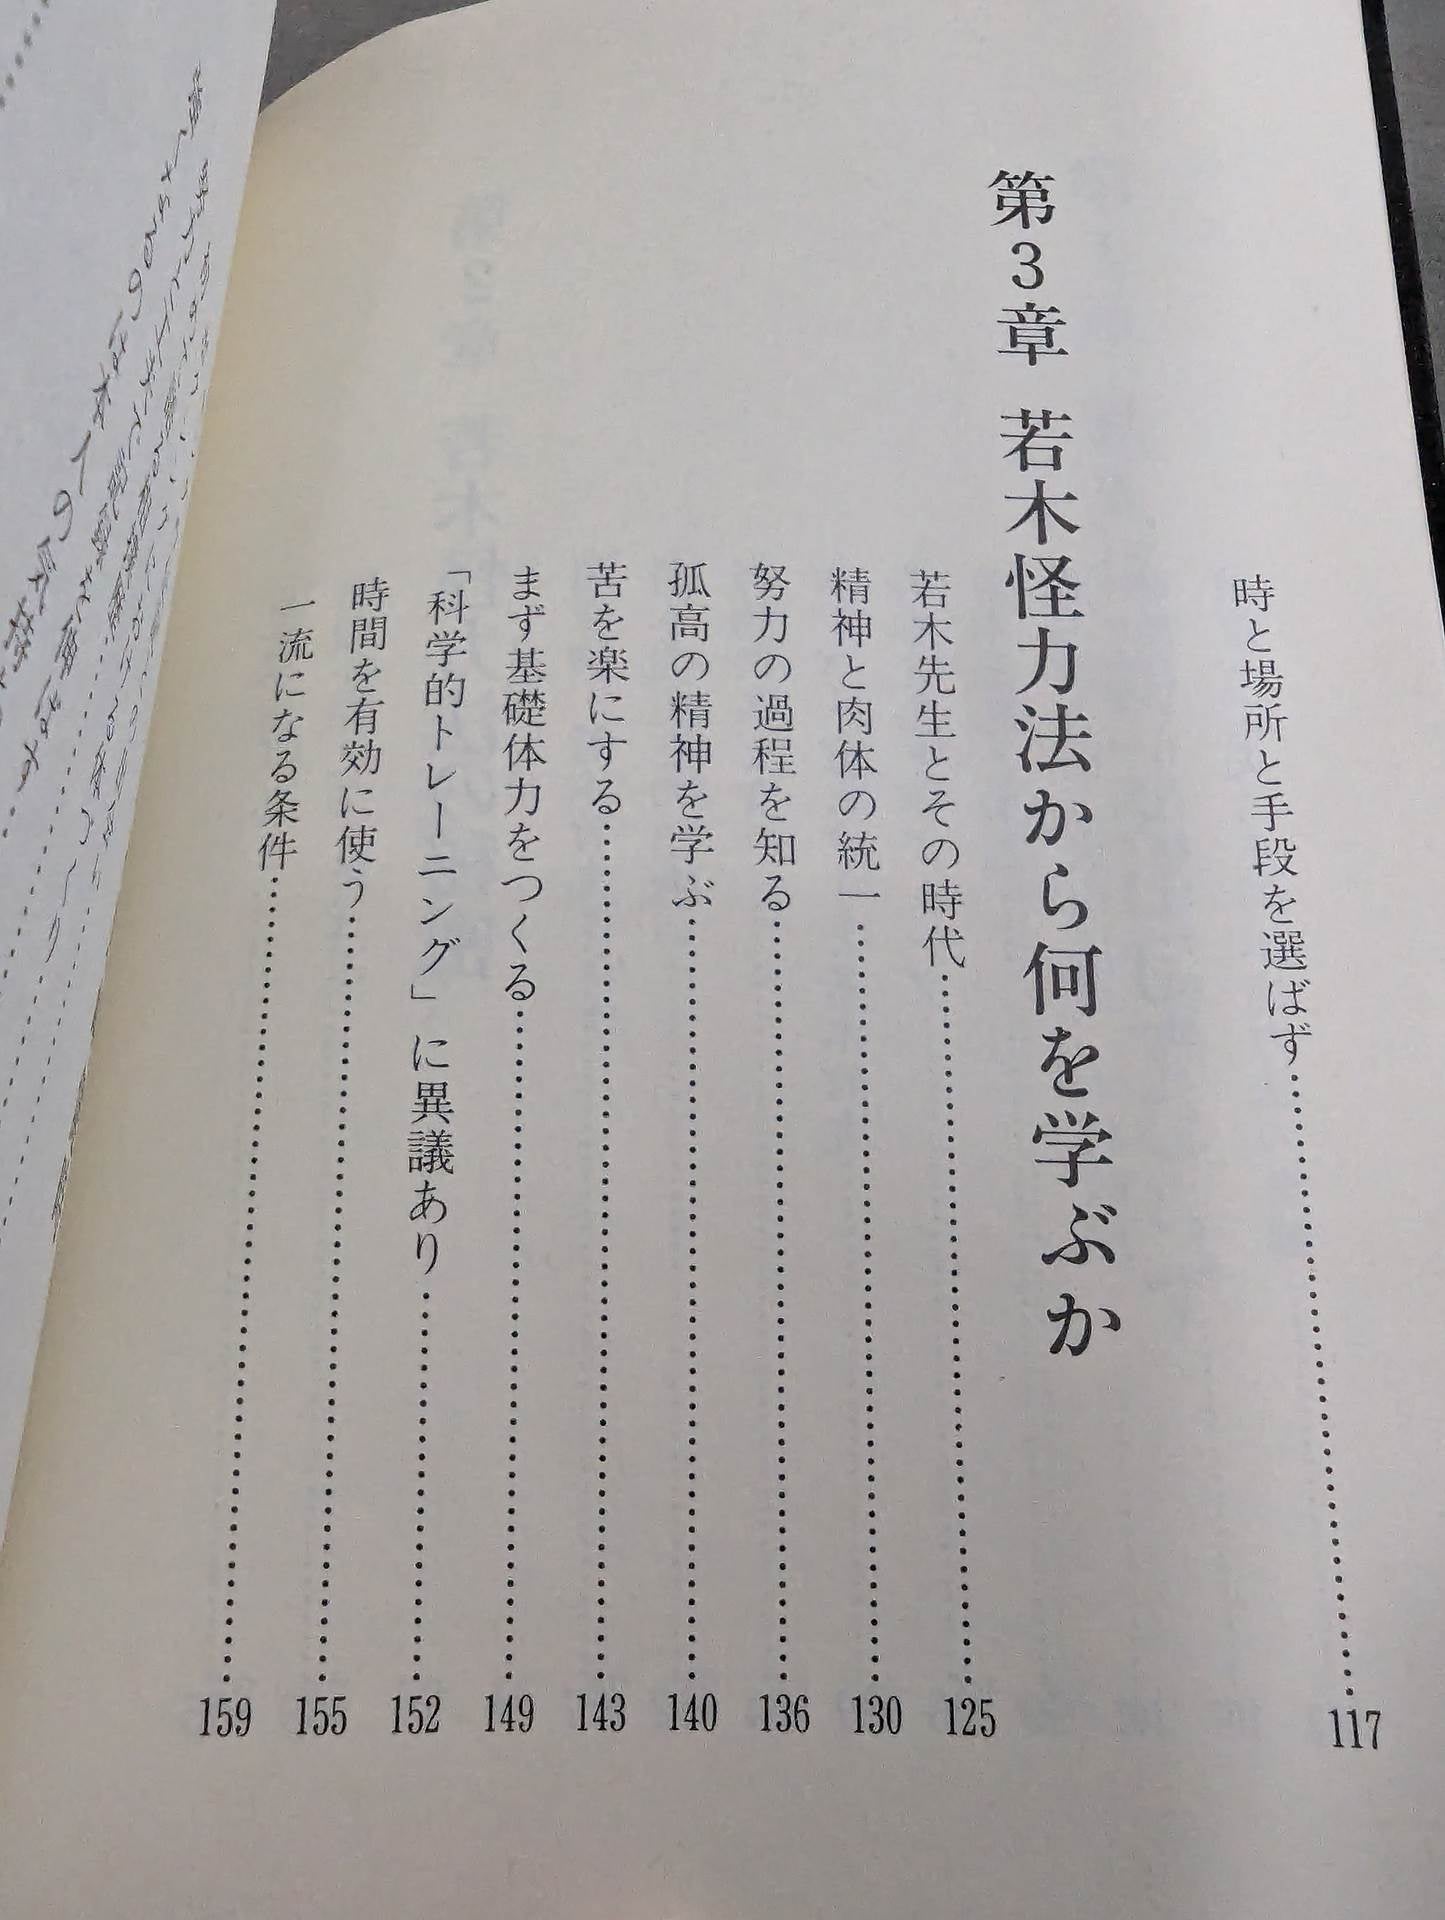 時と場所と手段を選ばず……117
第3章 若木怪力法から何を学ぶか
若木先生とその時代……125
精神と肉体の統一……130
努力の過程を知る……136
孤高の精神を学ぶ……140
苦を楽にする……143
まず基礎体力をつくる……149
「科学的トレーニング」に異議あり……152
時間を有効に使う……155
一流になる条件……159